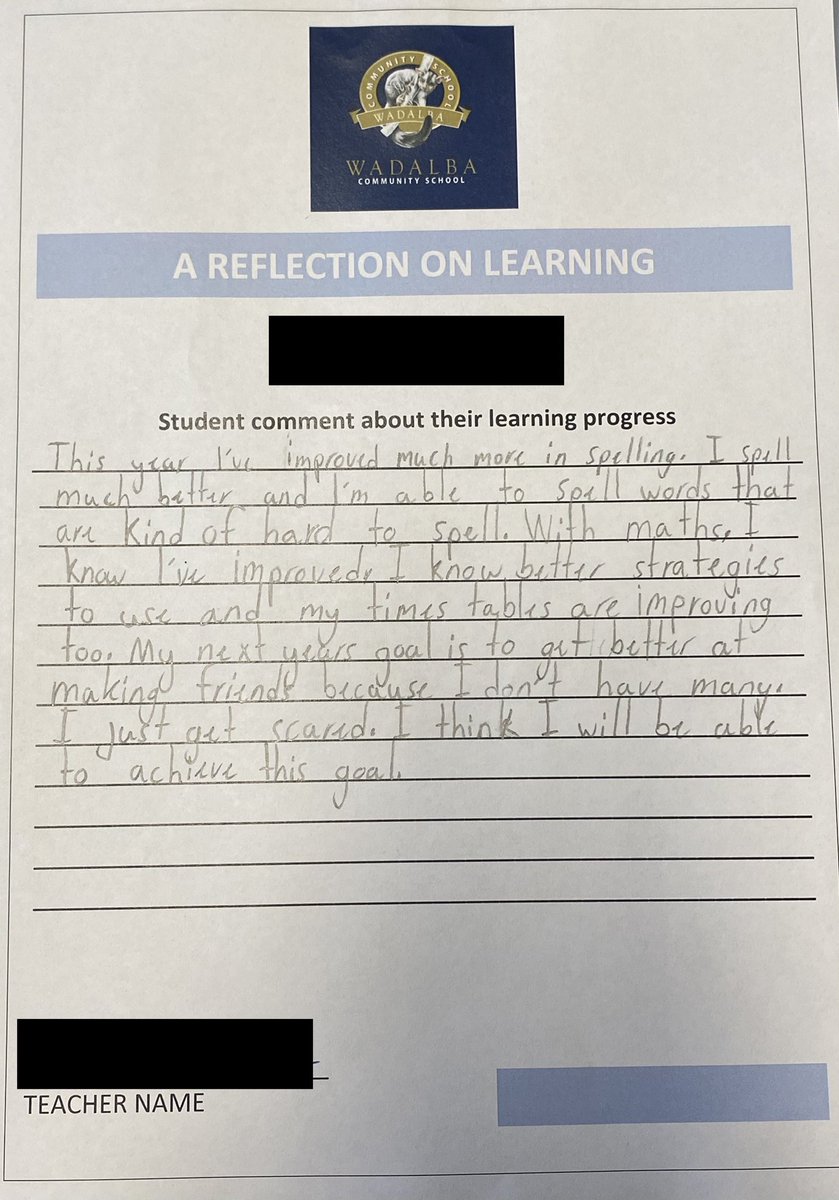 COMMUNITY SCHOOL
WADALBA
WADALBA
COMMUNITY SCHOOL
A REFLECTION ON LEARNING
Student comment about their learning progress
This year I've improved much more in spelling. I spell
much better and I'm able to spell words that
are kind of hard to spell. With maths, I
know I've improved, I know better strategies
to use and my times tables are improving
too. My next years goal is to get better at
making friends because I don't have many.
I just get scared. I think I will be able
to achieve this goal.
TEACHER NAME